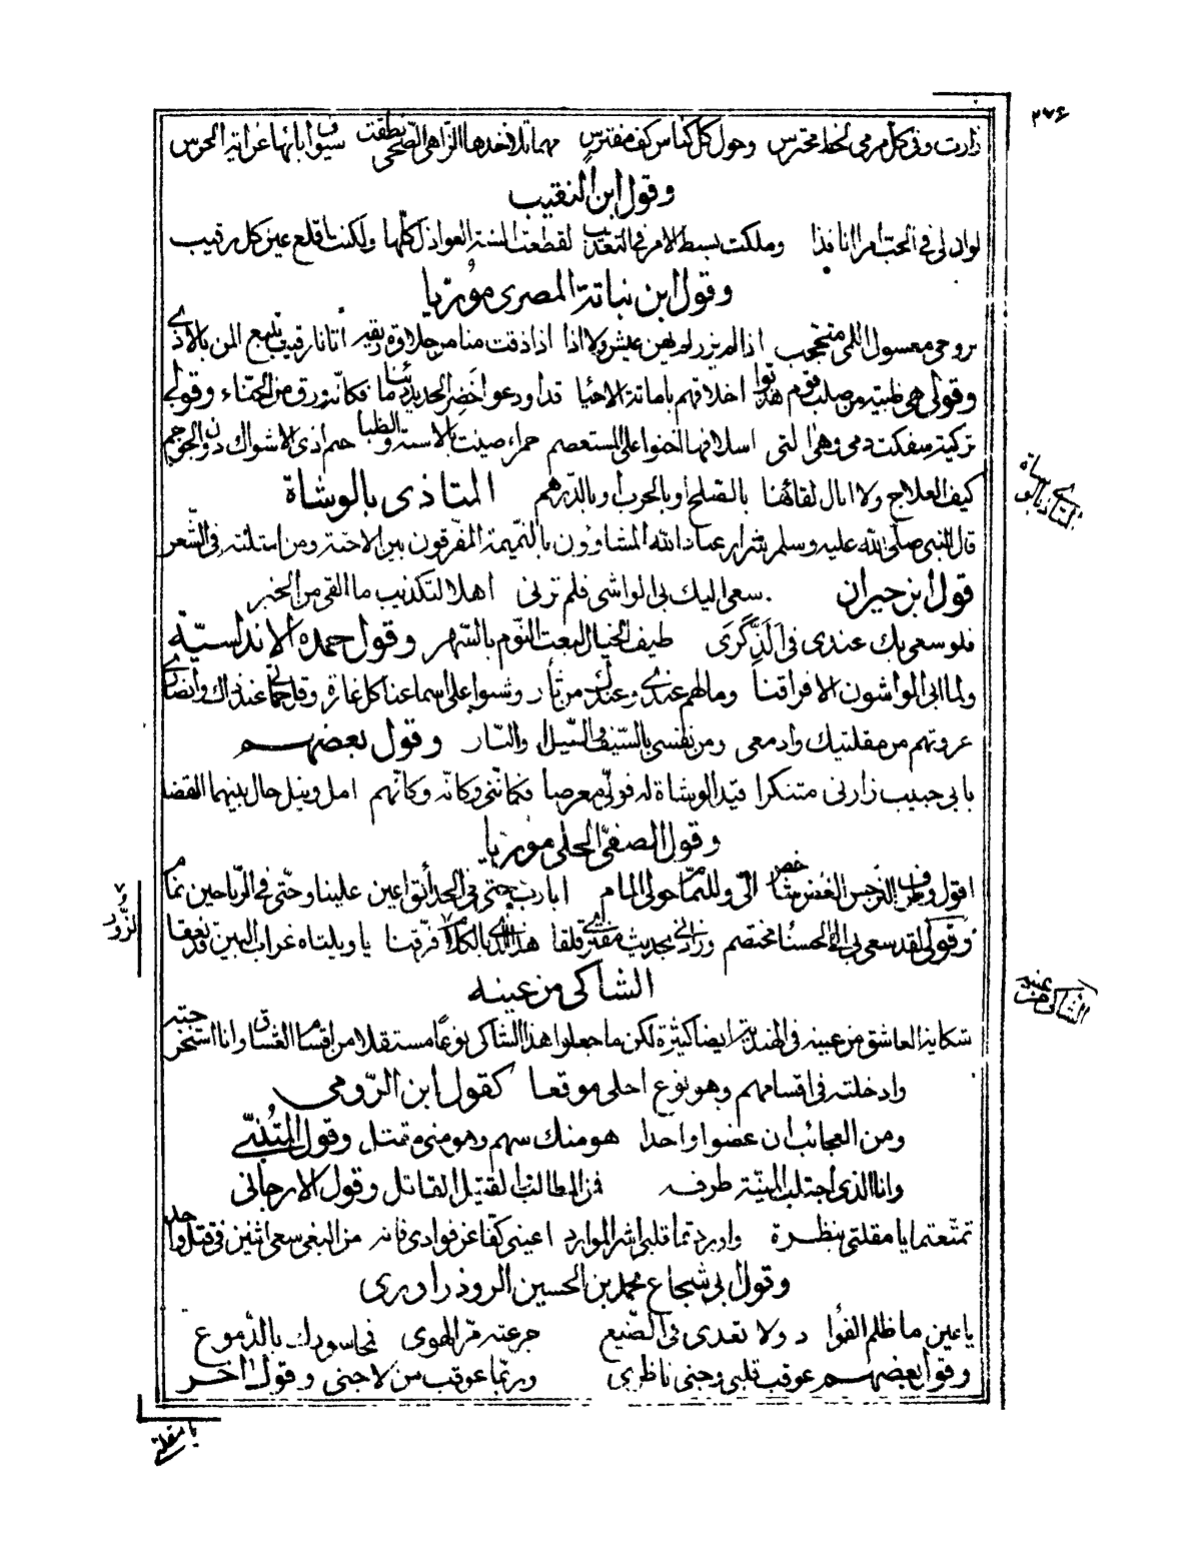 ٢٧٤
زارت وفي كل مرمى لحظ محترس وحول كل كناس كف مفترس مهما تلا خدها الزاهي الضحى نطقت سيوف ابائها عن اية الحرس
وقول ابن النقيب
لو ان لي في الحب امرا نافذا وملكت بسط الامر في التعذيب لقطعت السنة العواذل كلها ولكنت اقلع عين كل رقيب
وقول ابن نباتة المصري موريا
بروحي معسول اللمى متحجب اذا لم يزر لم يهن عيش ولا اذا اذا ذقت منا من حلاوة ريقه أتانا رقيب يتبع المن بالاذى
وقولي هي ظبية من صلب قوم هذبوا اخلاقهم باماتة الاحيا قد اودعوا خضر الحديد دما فكانه ورق من الحناء وقولي
تركية سفكت دمي وهي التي اسلافها اخنوا على المستعصم حمراء صينت بالاسنة والظبا حم اذى الاشواك دون الحوجم
كيف العلاج ولا انال لقائها بالصلح او بالحرب او بالدرهم المتاذى بالوشاة
المتاذى بالوشاة
قال النبي صلى الله عليه وسلم شرار عباد الله المشاؤون بالنميمة المفرقون بين الاحبة ومن امثلته في الشعر
قول ابن حيران سعى اليك بي الواشي فلم ترني اهلا لتكذيب ما القي من الخبر
فلو سعى بك عندي في الذ كرى طيف الخيال لبعت النوم بالسهر وقول حمده الاندلسية
ولما ابى الواشون الا فراقنا وما لهم عندي وعندك من ثار وشنوا على اسماعنا كل غارة وقل حماتي عند ذاك وانصاري
غزوتهم من مقلتيك وادمعي ومن نفسي بالسيف والسيل والنار وقول بعضهم
بابي حبيب زارني متنكرا فبدا الوشاة له فولى معرضا فكانني وكانه وكانهم امل ونيل حال بينهما القضا
وقول الصفي الحلي موريا
اقول وطرف النرجس الغض شاخص الي وللنمام حولي المام ايا رب حتى في الحدائق اعين علينا وحتى في الرياحين نمام
وقولي لقد سعى بي الى الحسنا مختصم ورانى بحديث مفترى قلقا هذا الذي بالكلام فرقنا يا ويلتاه غراب البين قد نعقا
الزور
الشاكي من عينه
الشاكى من عينه
شكاية العاشق من عينه في الهندية ايضا كثيرة لكن ما جعلوا هذا الشاكي نوعا مستقلا من اقسام العشاق وانا استخرجته
وادخلته في اقسامهم وهو نوع احلى موقعا كقول ابن الرومي
ومن العجائب ان عضوا واحدا هو منك سهم وهو مني مقتل وقول المتنبي
وانا الذي اجتلب المنية طرفه فمن المطالب القتيل القاتل وقول الارجاني
تمتعتما يا مقلتي بنظرة واوردتما قلبي اشر الموارد اعيني كفا عن فوادي فانه من البغي سعى اثنين في قتل واحد
وقول ابي شجاع محمد بن الحسين الروذراوري
يا عين ما ظلم الفؤا د ولا تعدى في الصنيع جرعته مر الهوى فمحا سوادك بالدموع
وقول بعضهم عوقب قلبي وجنى ناظري وربما عوقب من لا جنى وقول اخر
يا مقلتي